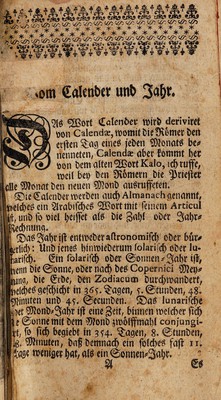 Vom Calender und Jahr.
DAs Wort Calender wird derivirt
von Calendæ, womit die Römer den
ersten Tag eines jeden Monats be-
nenneten, Calendæ aber kommt her
von dem alten Wort Kalo, ich ruffe,
weil bey den Römern die Priester
alle Monat den neuen Mond ausruffeten.
Die Calender werden auch Almanach genannt,
welches ein Arabisches Wort mit seinem Articul
ist, und so viel heisset als die Zahl oder Jahr-
Rechnung.
Das Jahr ist entweder astronomisch oder bür-
gerlich: Und jenes hinwiederum solarisch oder lu-
narisch. Ein solarisch oder Sonnen-Jahr ist,
wenn die Sonne, oder nach des Copernici Mey-
nung, die Erde, den Zodiacum durchwandert,
welches geschicht in 365. Tagen, 5. Stunden, 48.
Minuten und 45. Secunden. Das lunarische
oder Mond-Jahr ist eine Zeit, binnen welcher sich
die Sonne mit dem Mond zwölffmahl conjungi-
ret, so sich begiebt in 354. Tagen, 8. Stunden,
Minuten, daß demnach ein solches fast 11.
Tage weniger hat, als ein Sonnen-Jahr.
A Es